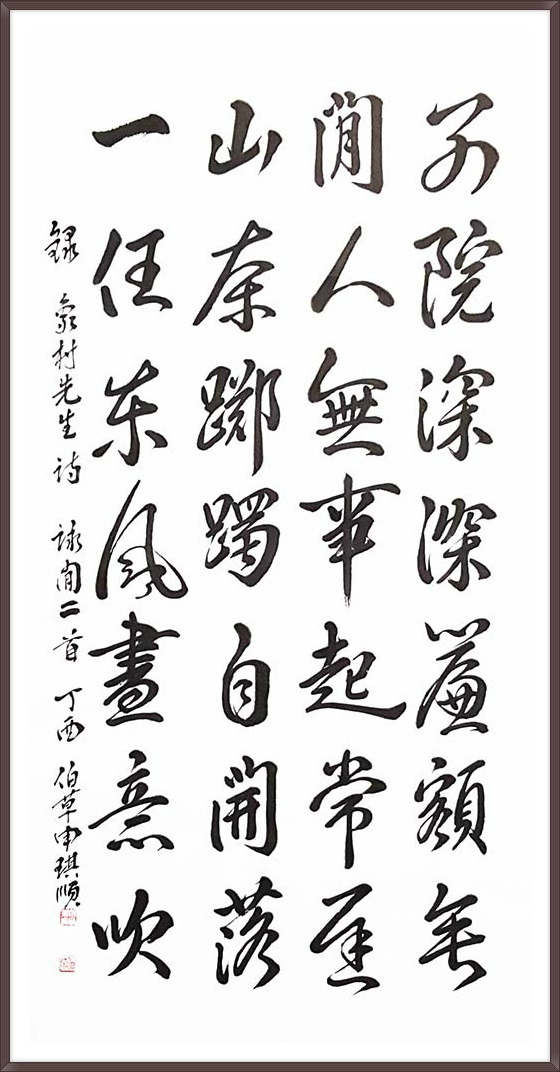 別院深深簾額垂
閒人無事起常遲
山茶躑躅自開落
一任東風盡意吹
錄 象村先生詩 詠閒二首 丁酉 伯草申琪順